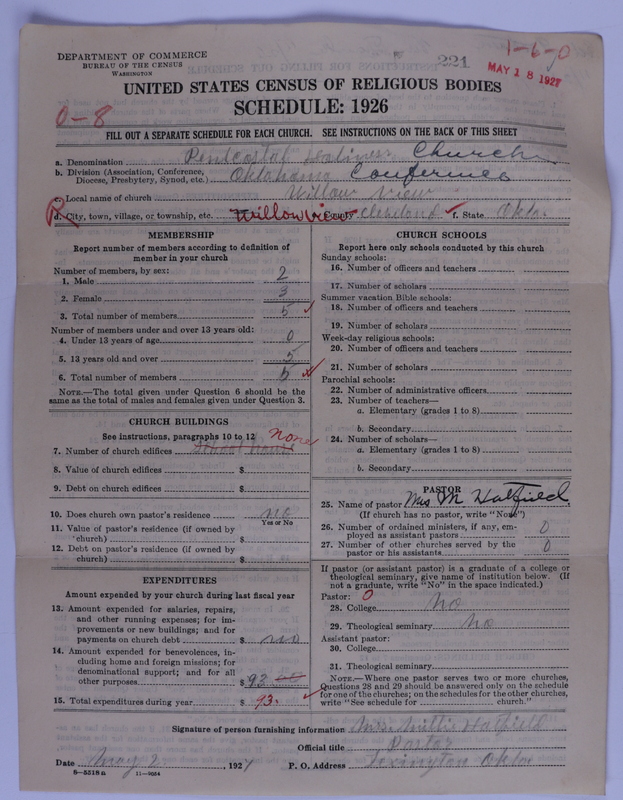 DEPARTMENT OF COMMERCE
BUREAU OF THE CENSUS
WASHINGTON
221
1-6-0
MAY 18 1927
UNITED STATES CENSUS OF RELIGIOUS BODIES
SCHEDULE: 1926
0-8
FILL OUT A SEPARATE SCHEDULE FOR EACH CHURCH. SEE INSTRUCTIONS ON THE BACK OF THIS SHEET
a. Denomination Pentcostal Holiness Church
b. Division (Association, Conference, Diocese, Presbytery, Synod, etc.) Oklahoma Conference
c. Local name of church Willow View
R
d. City, town, village, or township, etc. Willow View County Cleveland f. State Okla.
MEMBERSHIP
Report number of members according to definition of member in your church
Number of members, by sex:
1. Male 2
2. Female 3
3. Total number of members 5
Number of members under and over 13 years old:
4. Under 13 years of age 0
5. 13 years old and over 5
6. Total number of members 5
NOTE.—The total given under Question 6 should be the same as the total of males and females given under Question 3.
CHURCH BUILDINGS
See instructions, paragraphs 10 to 12
none
7. Number of church edifices School house
8. Value of church edifices $
9. Debt on church edifices $
10. Does church own pastor's residence no
Yes or No
11. Value of pastor's residence (if owned by church) $
12. Debt on pastor's residence (if owned by church) $
EXPENDITURES
Amount expended by your church during last fiscal year
13. Amount expended for salaries, repairs, and other running expenses; for improvements or new buildings; and for payments on church debt $ no
14. Amount expended for benevolences, including home and foreign missions; for denominational support; and for all other purposes $ 93
15. Total expenditures during year $ 93.
CHURCH SCHOOLS
Report here only schools conducted by this church
Sunday schools:
16. Number of officers and teachers
17. Number of scholars
Summer vacation Bible schools:
18. Number of officers and teachers
19. Number of scholars
Week-day religious schools:
20. Number of officers and teachers
21. Number of scholars
Parochial schools:
22. Number of administrative officers
23. Number of teachers—
a. Elementary (grades 1 to 8)
b. Secondary
24. Number of scholars—
a. Elementary (grades 1 to 8)
b. Secondary
PASTOR
25. Name of pastor Mrs M Hatfield
(If church has no pastor, write "None")
26. Number of ordained ministers, if any, employed as assistant pastors 0
27. Number of other churches served by the pastor or his assistants 0
If pastor (or assistant pastor) is a graduate of a college or theological seminary, give name of institution below. (If not a graduate, write "No" in the space indicated.)
Pastor: 0
28. College No
29. Theological seminary No
Assistant pastor:
30. College
31. Theological seminary
NOTE.—Where one pastor serves two or more churches, Questions 28 and 29 should be answered only on the schedule for one of the churches; on the schedules for the other churches, write "See schedule for church."
Signature of person furnishing information Mrs Millie Hatfield
Official title Pastor
Date May 2, 1927 P. O. Address Lexington Okla
8—5518a 11—9034